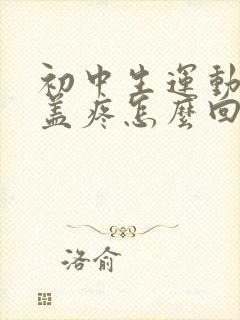 初中生運動
蓋疼怎麼回
洛俞